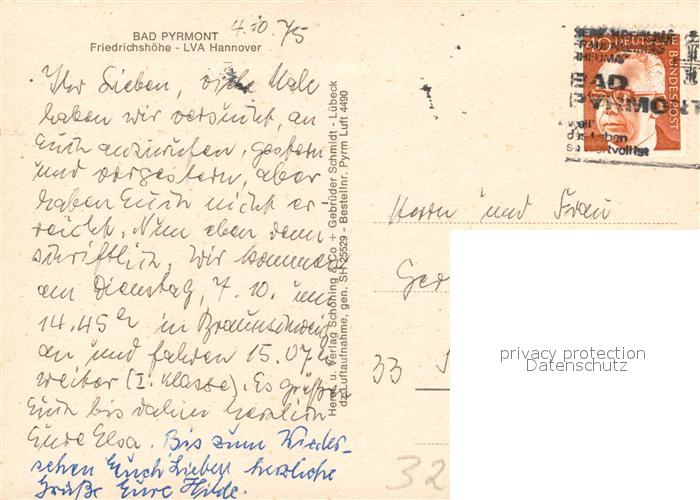 4.10.75
BAD PYRMONT
Friedrichshöhe - LVA Hannover
Ihr Lieben, viele Male
haben wir versucht, an
Euch anzurufen, gestern
und vorgestern, aber
haben Euch nicht er-
reicht. Nun eben denn
schriftlich. Wir kommen
am Dienstag, 7.10. um
14.45 in Braunschweig
an und fahren 15.07
weiter (I. Klasse). Es grüßen
Euch bis dahin herzlich
Eure Elsa. Bis zum Wieder-
sehen Euch Lieben herzliche
Grüße Eure Hilde.
Herst. u. Verlag Schöning & Co + Gebrüder Schmidt - Lübeck
dz. Luftaufnahme, gen. SH 25529 - Bestellnr. Pyrm Luft 4490
40 DEUTSCHE BUNDESPOST
FRAUEN
RHEUMA
BAD
PYRMONT
weil
das Leben
so wertvoll ist
Herrn und Frau
Ger
33
32
privacy protection
Datenschutz